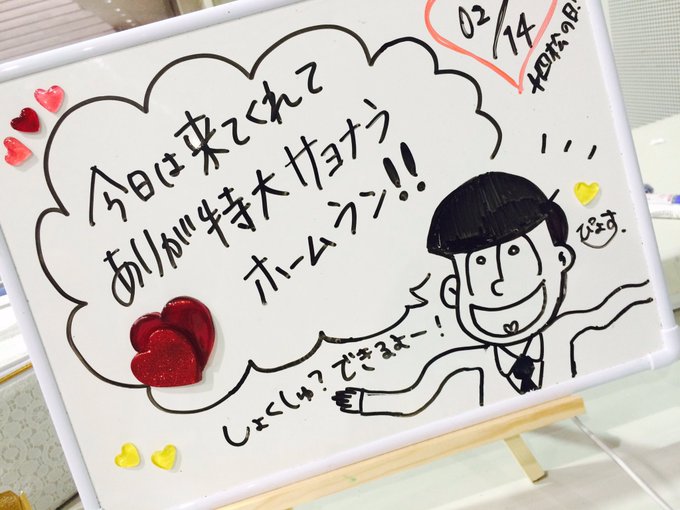 02/14
十四松の日!
今日は来てくれて
ありが特大サヨナラ
ホームラン!!
ぴょす。
しょくしゅ?できるよー!